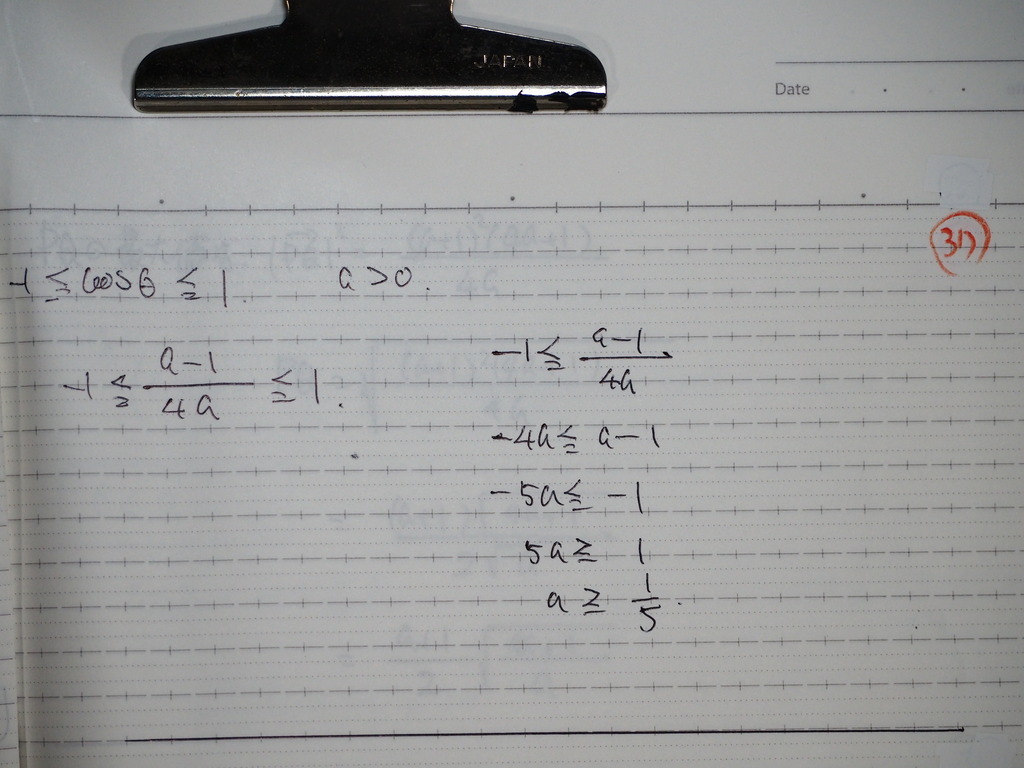 JAPAN
Date
-1 ≦ cosθ ≦ 1. a > 0.
-1 ≦ \frac{a-1}{4a} ≦ 1.
-1 ≦ \frac{a-1}{4a}
-4a ≦ a-1
-5a ≦ -1
5a ≧ 1
a ≧ \frac{1}{5}.